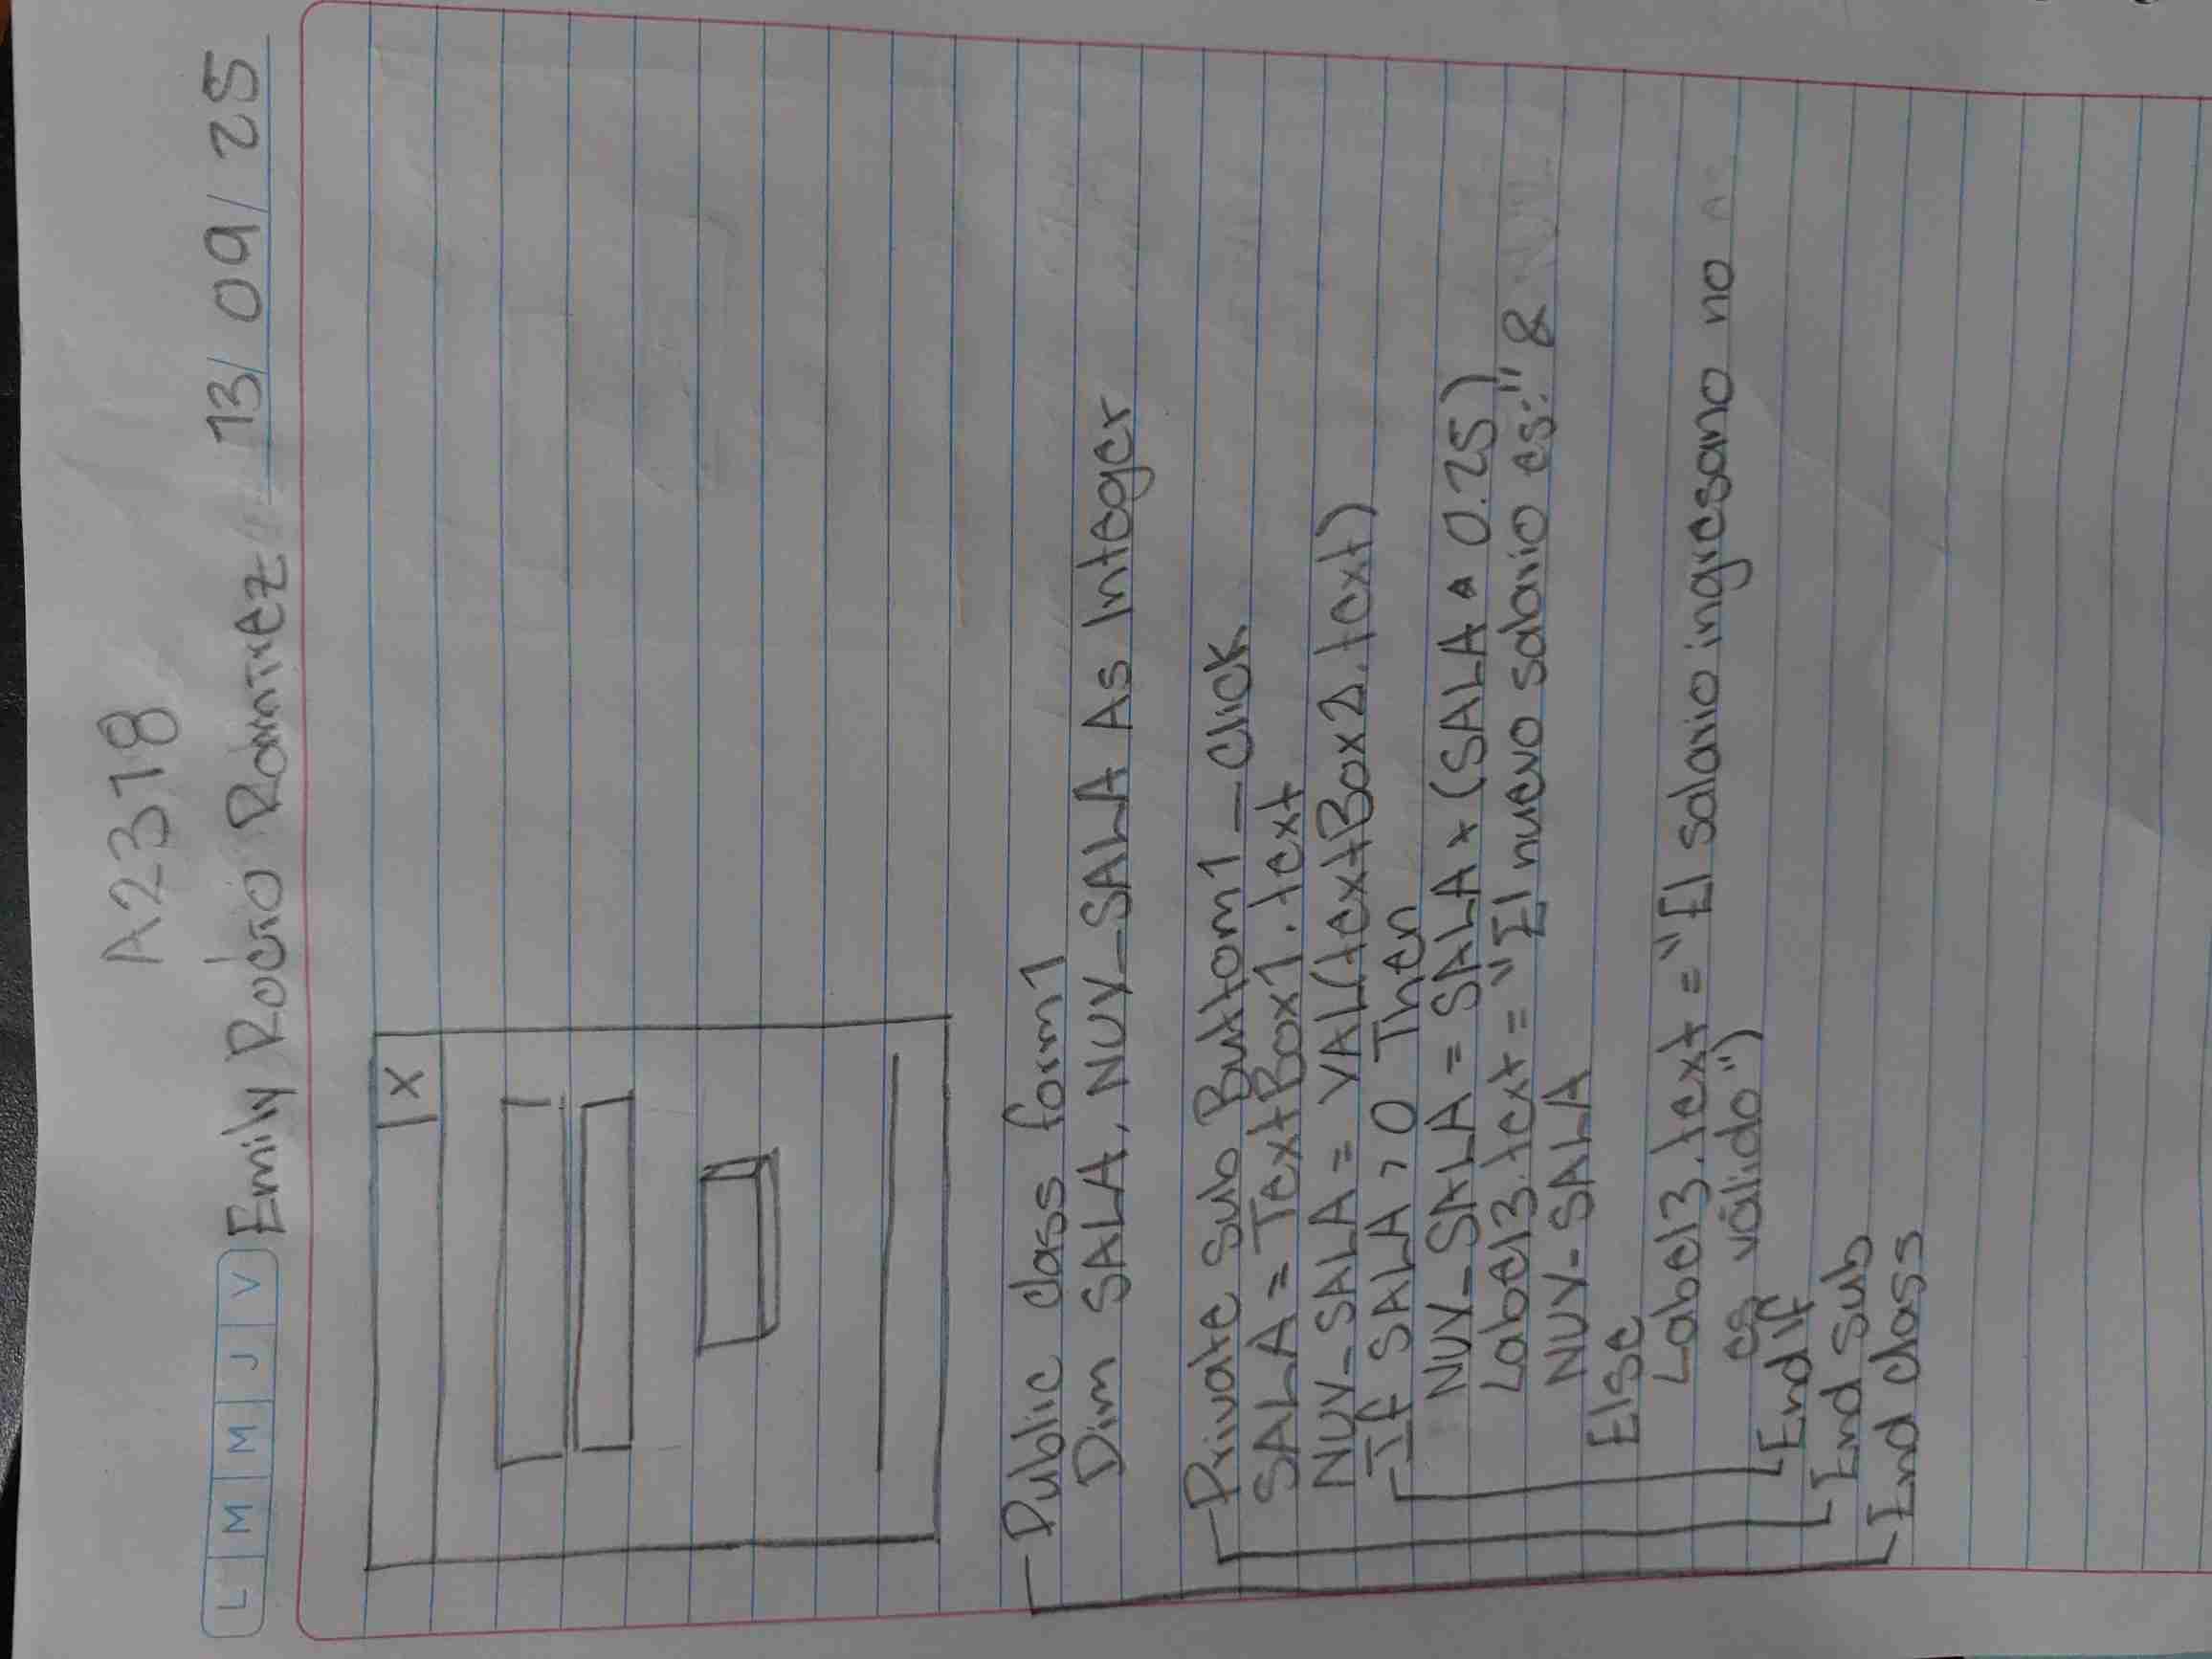 A2318
L M M J V Emily Rocio Ramirez 13/ 09/ 25
X
Public class form1
Dim SALA, NUV_SALA As Integer
Private Sub Buttom1_click
SALA = TextBox1.text
NUV_SALA = VAL(textBox2.text)
If SALA > 0 Then
NUV_SALA = SALA + (SALA * 0.25)
Label3.text = "El nuevo salario es:" &
NUV_SALA
Else
Label3.text = "El salario ingresano no
es válido")
End If
End Sub
End class